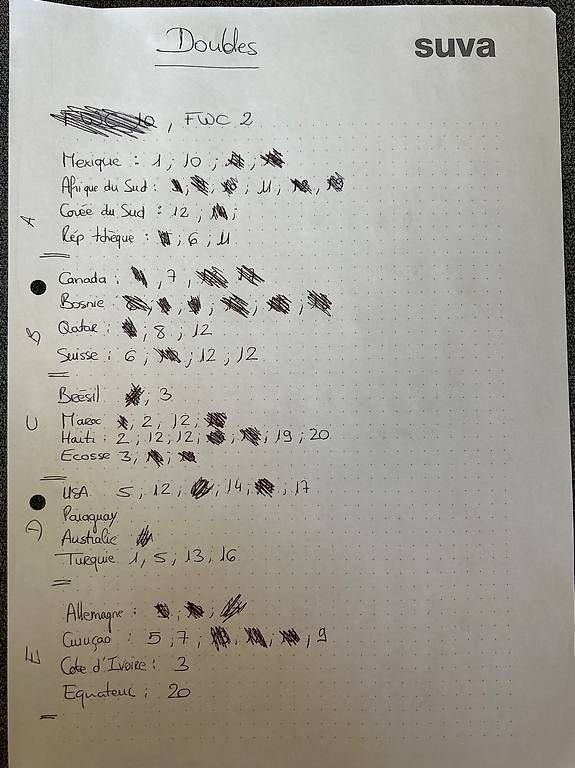 Doubles
suva
, FWC 2
Mexique : 1 ; 10 ;
Afrique du Sud : 11 ;
Corée du Sud : 12 ;
A
Rép tchèque : ; 6 ; 11
Canada : , 7 ,
Bosnie
B
Qatar : ; 8 ; 12
Suisse : 6 ; ; 12 ; 12
Brésil , 3
C
Maroc , 2 , 12 ;
Haïti : 2 ; 12 ; 12 ; ; ; 19 ; 20
Ecosse 3, ;
USA 5 ; 12 , ; 14 ; ; 17
Paraguay
D
Australie
Turquie 1 , 5 ; 13 ; 16
Allemagne : ; ;
Curuçao : 5 ; 7 ; , ; , 9
E
Cote d'Ivoire : 3
Equateur ; 20